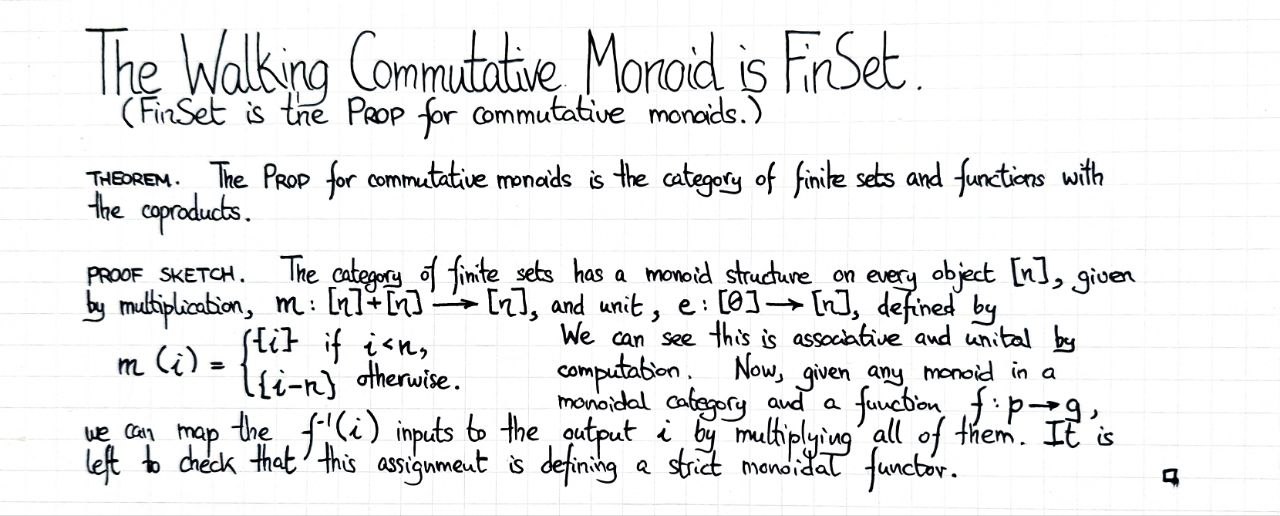 The Walking Commutative Monoid is FinSet.
(FinSet is the PROP for commutative monoids.)
THEOREM. The PROP for commutative monoids is the category of finite sets and functions with
the coproducts.
PROOF SKETCH. The category of finite sets has a monoid structure on every object [n], given
by multiplication, m : [n]+[n] → [n], and unit, e : [0] → [n], defined by
m (i) = { {i} if i<n,
{i-n} otherwise.
We can see this is associative and unital by
computation. Now, given any monoid in a
monoidal category and a function f : p → q,
we can map the f⁻¹(i) inputs to the output i by multiplying all of them. It is
left to check that this assignment is defining a strict monoidal functor.